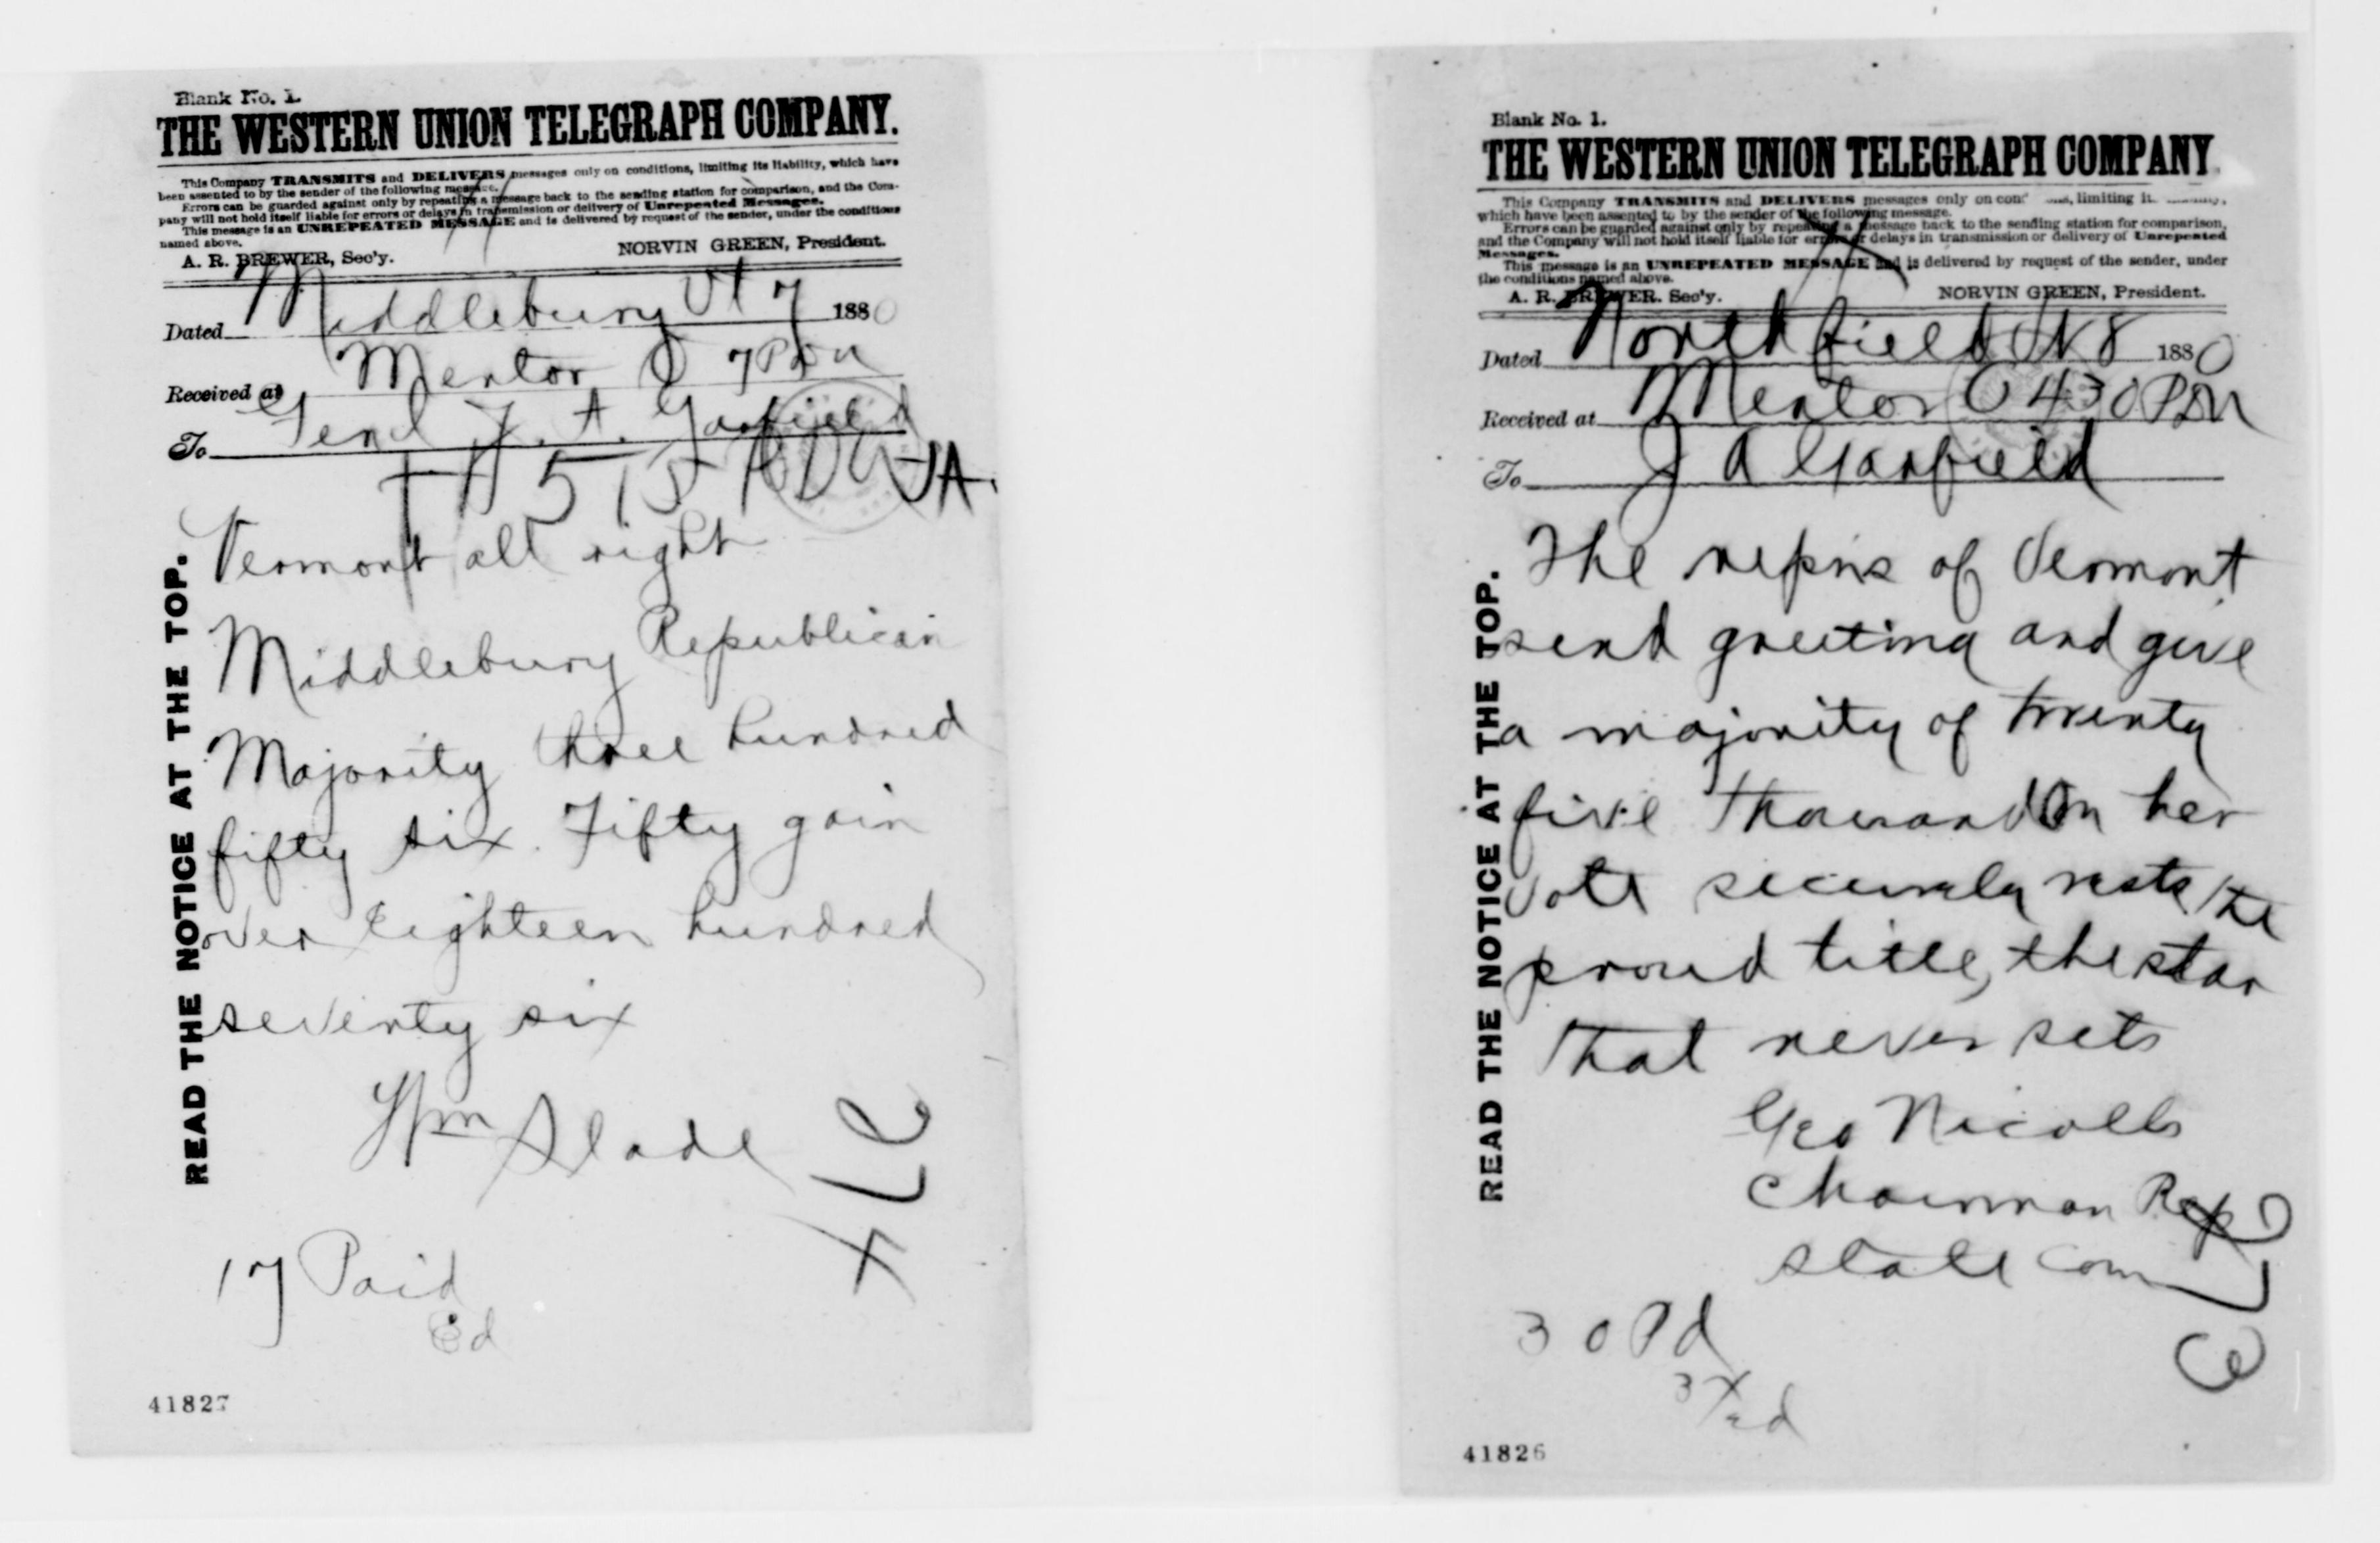 Blank No. 1.
THE WESTERN UNION TELEGRAPH COMPANY.
This Company TRANSMITS and DELIVERS messages only on conditions, limiting its liability, which have
been assented to by the sender of the following message.
Errors can be guarded against only by repeating a message back to the sending station for comparison, and the Com-
pany will not hold itself liable for errors or delays in transmission or delivery of Unrepeated Messages.
This message is an UNREPEATED MESSAGE and is delivered by request of the sender, under the conditions
named above.
A. R. BREWER, Sec'y. NORVIN GREEN, President.
Dated Middlebury Vt 7 1880
Received at Mentor O 7 Pm
To Genl J. A. Garfield
READ THE NOTICE AT THE TOP.
Vermont all right
Middlebury Republican
Majority three hundred
fifty six. Fifty gain
over Eighteen hundred
seventy six
Wm Slade
17 Paid
Ed
41827
Blank No. 1.
THE WESTERN UNION TELEGRAPH COMPANY
This Company TRANSMITS and DELIVERS messages only on limiting
which have been assented to by the sender of the following message.
Errors can be guarded against only by repeating a message back to the sending station for comparison,
and the Company will not hold itself liable for errors or delays in transmission or delivery of Unrepeated
Messages.
This message is an UNREPEATED MESSAGE and is delivered by request of the sender, under
the conditions named above.
A. R. BREWER. Sec'y. NORVIN GREEN, President.
Dated Northfield Vt 8 1880
Received at Mentor O 430 Pm
To J A Garfield
READ THE NOTICE AT THE TOP.
The repns of Vermont
send greeting and give
a majority of twenty
five Thousand On her
vote securely rests the
proud title, the star
that never sets
Geo Nicolls
Chairman Rep
state com
30 Pd
41826